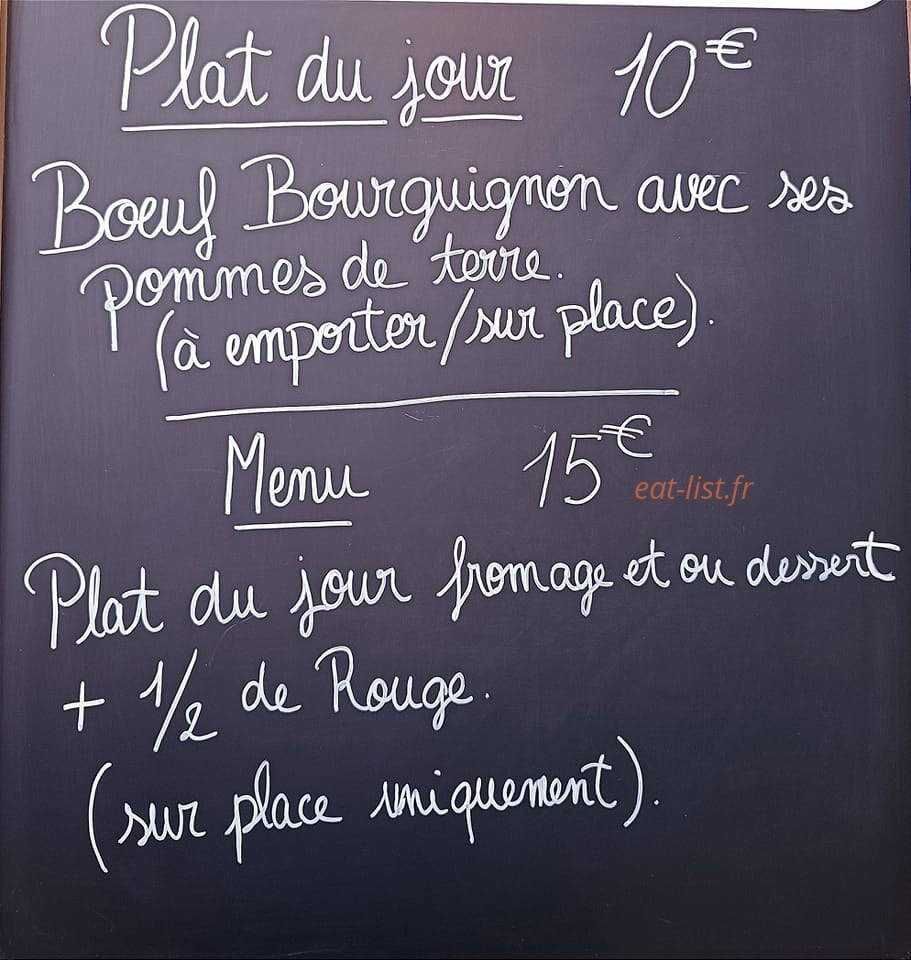 Plat du jour 10€
Bœuf Bourguignon avec ses
pommes de terre.
(à emporter/sur place).
Menu 15€
eat-list.fr
Plat du jour fromage et ou dessert
+ 1/2 de Rouge.
(sur place uniquement).